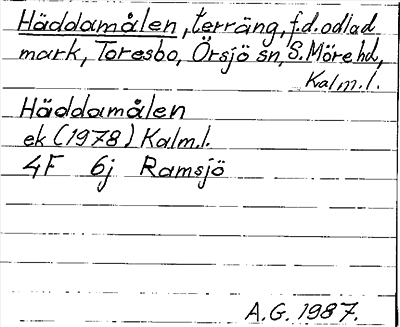 Häddamålen, terräng, f.d. odlad
mark, Toresbo, Örsjö sn, S. Möre hd,
Kalm.l.
Häddamålen
ek (1978) Kalm.l.
4F 6j Ramsjö
A.G. 1987.